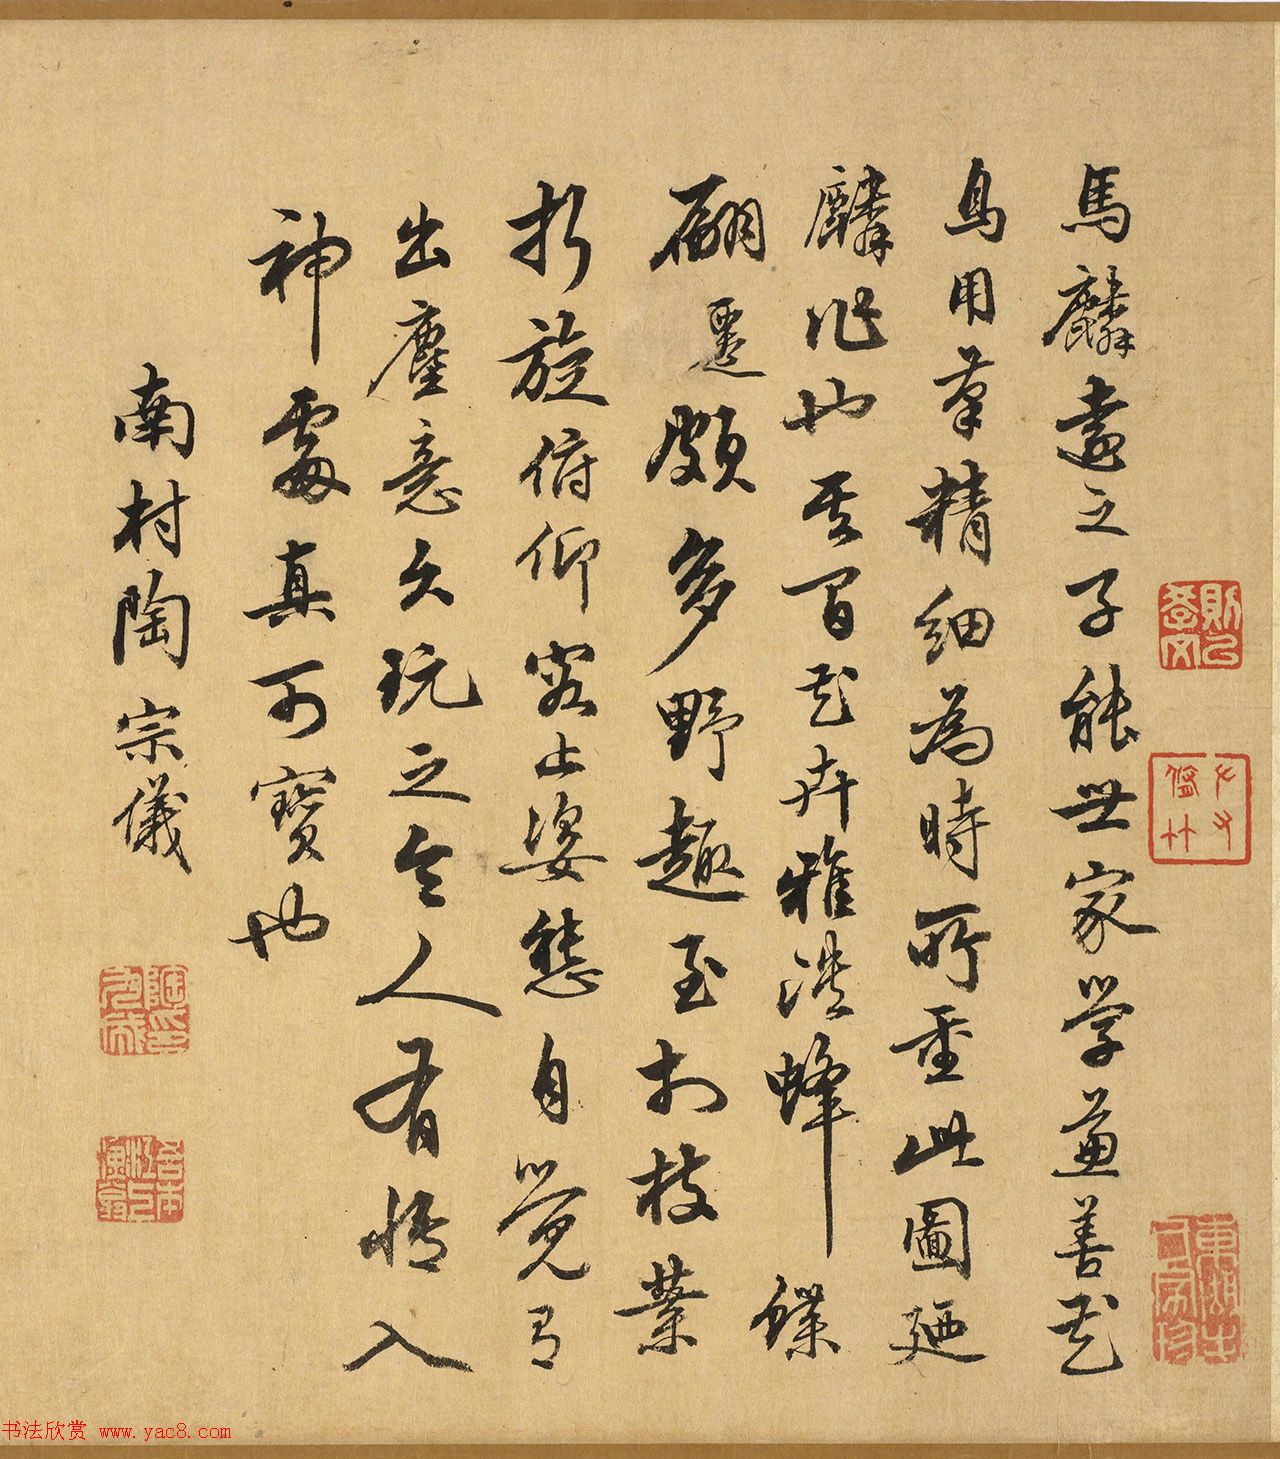 馬麟遠之子能世家學兼善花
鳥用筆精細為時所重此圖廼
麟作也其間花卉雅淡蜂蝶
翩躚頗多野趣至於枝葉
折旋俯仰容止姿態自覺有
出塵意久玩之令人有悟入
神處真可寶也
南村陶宗儀
书法欣赏 www.yac8.com